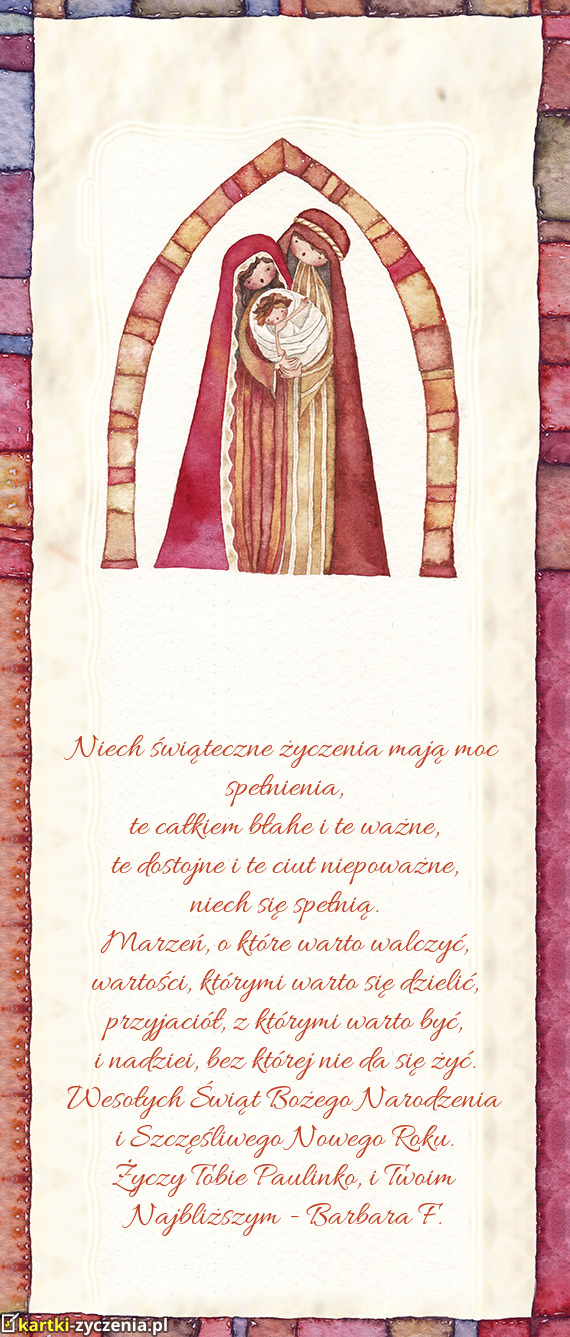 Niech świąteczne życzenia mają moc
spełnienia,
te całkiem błahe i te ważne,
te dostojne i te ciut niepoważne,
niech się spełnią.
Marzeń, o które warto walczyć,
wartości, którymi warto się dzielić,
przyjaciół, z którymi warto być,
i nadziei, bez której nie da się żyć.
Wesołych Świąt Bożego Narodzenia
i Szczęśliwego Nowego Roku.
Życzy Tobie Paulinko, i Twoim
Najbliższym - Barbara F.
kartki-zyczenia.pl